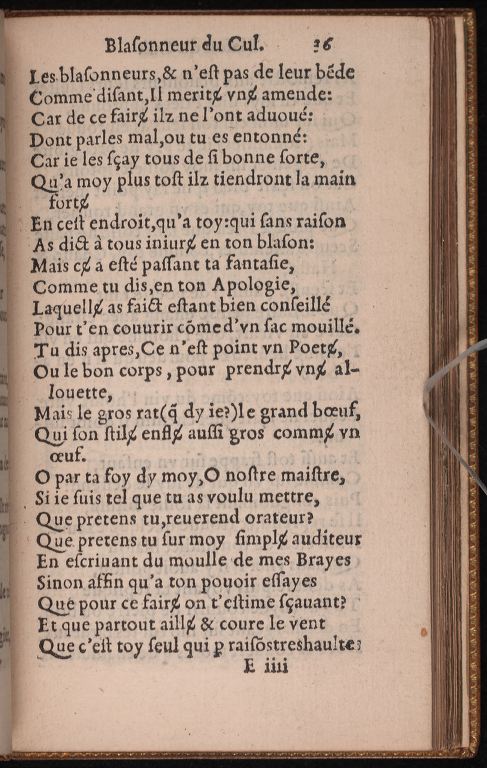 Blaſonneur du Cul. 36
Les blaſonneurs,& n'eſt pas de leur bẽde
Comme diſant,Il meritɇ vnɇ amende:
Car de ce fairɇ ilz ne l'ont aduoué:
Dont parles mal,ou tu es entonné:
Car ie les ſçay tous de ſi bonne ſorte,
Qu'a moy plus toſt ilz tiendront la main
fortɇ
En ceſt endroit,qu'a toy:qui ſans raiſon
As dict à tous iniurɇ en ton blaſon:
Mais cɇ a eſté paſſant ta fantaſie,
Comme tu dis,en ton Apologie,
Laquellɇ as faict eſtant bien conſeillé
Pour t'en couurir cõme d'vn ſac mouillé.
Tu dis apres,Ce n'eſt point vn Poetɇ,
Ou le bon corps, pour prendrɇ vnɇ al-
louette,
Mais le gros rat(q̃ dy ie?)le grand bœuf,
Qui ſon ſtilɇ enflɇ auſſi gros commɇ vn
œuf.
O par ta foy dy moy,O noſtre maiſtre,
Si ie ſuis tel que tu as voulu mettre,
Que pretens tu,reuerend orateur?
Que pretens tu ſur moy ſimplɇ auditeur
En eſcriuant du moulle de mes Brayes
Sinon affin qu'a ton pouoir eſſayes
Que pour ce fairɇ on t'eſtime ſçauant?
Et que partout aillɇ & coure le vent
Que c'eſt toy ſeul qui ꝑ raiſõstreshaulte?
E iiii